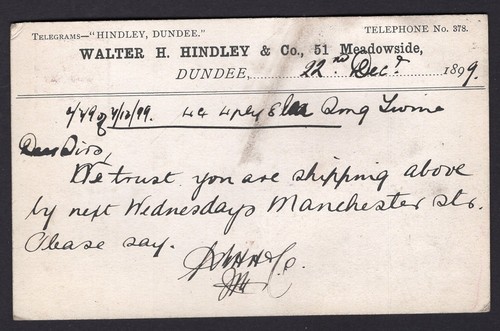 TELEGRAMS—"HINDLEY, DUNDEE." TELEPHONE No. 378.
WALTER H. HINDLEY & Co., 51 Meadowside,
DUNDEE, 22nd Decr 1899.
of 4/12/99. 4 ply Twine
Dear Sirs,
We trust you are shipping above
by next Wednesdays Manchester str.
Please say.